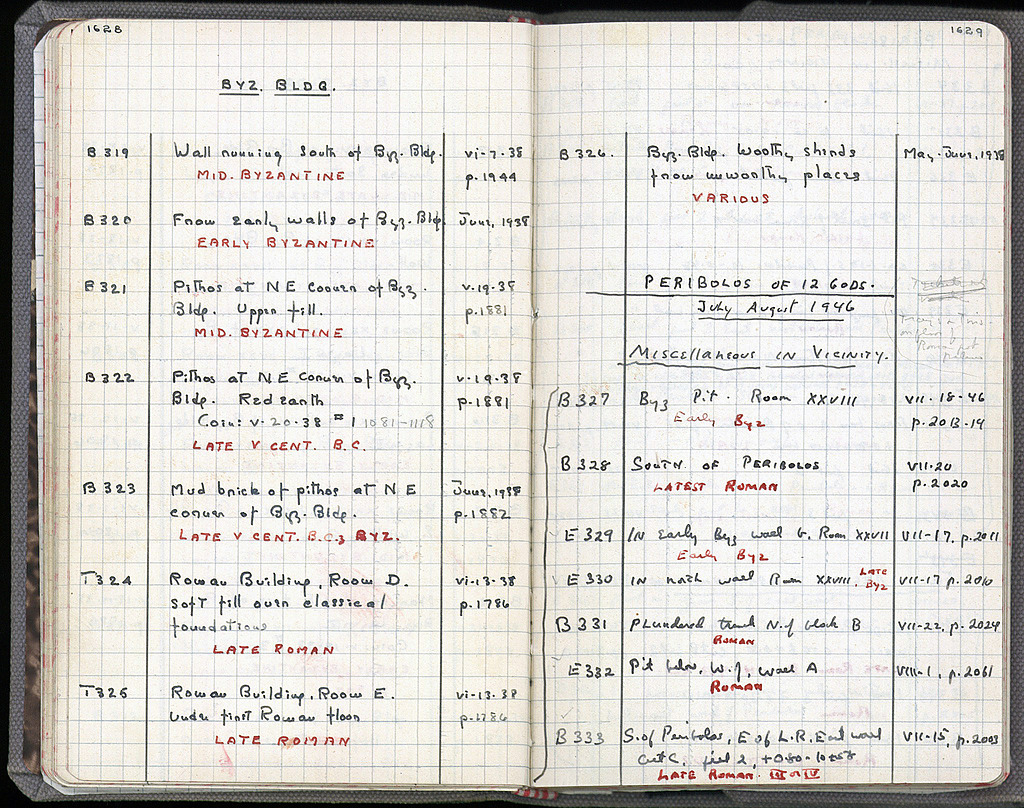 1628
BYZ. BLDG.
B 319 Wall running South of Byz. Bldg. vi-7-38
MID. BYZANTINE p.1944
B 320 From early walls of Byz. Bldg. June, 1938
EARLY BYZANTINE
B 321 Pithos at NE corner of Byz. v-19-38
Bldg. Upper fill. p.1881
MID. BYZANTINE
B 322 Pithos AT NE corner of Byz. v-19-38
Bldg. Red earth p.1881
Coin: v-20-38 #1 1081-1118
LATE V CENT. B.C.
B 323 Mud brick of pithos AT NE June, 1938
corner of Byz. Bldg. p.1882
LATE V CENT. B.C. & BYZ.
T 324 Roman Building, Room D. vi-13-38
Soft fill over classical p.1786
foundations
LATE ROMAN
T 325 Roman Building, Room E. vi-13-38
under first Roman floor p.1786
LATE ROMAN
1629
B 326. Byz. Bldg. Worthy sherds May-June, 1938
from unworthy places
VARIOUS
PERIBOLOS OF 12 GODS.
July August 1946
Miscellaneous IN VICINITY.
B 327 Byz Pit. Room XXVIII VII-18-46
Early Byz p.2013-14
B 328 SOUTH OF PERIBOLOS VII-20
LATEST ROMAN p.2020
E 329 IN Early Byz wall b. Room XXVII VII-17, p.2011
Early Byz
E 330 IN north wall Room XXVIII. LATE BYZ VII-17 p.2010
B 331 Plundered trench N. of block B VII-22, p.2024
ROMAN
E 332 Pit below, W. of, wall A VIII-1, p.2061
ROMAN
B 333 S. of Peribolos, E of L.R. East wall VII-15, p.2003
Cut C, fill 2,
LATE ROMAN. III or IV